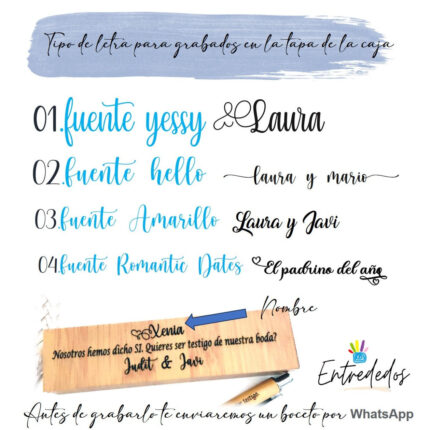 Tipo de letra para grabados en la tapa de la caja
01.fuente yessy Laura
02.fuente hello laura y mario
03.fuente Amarillo Laura y Javi
04.fuente Romantic Dates El padrino del año
Nombre
Xenia
Nosotros hemos dicho SI. Quieres ser testigo de nuestra boda?
Judit & Javi
Entrededos
Antes de grabarlo te enviaremos un boceto por WhatsApp